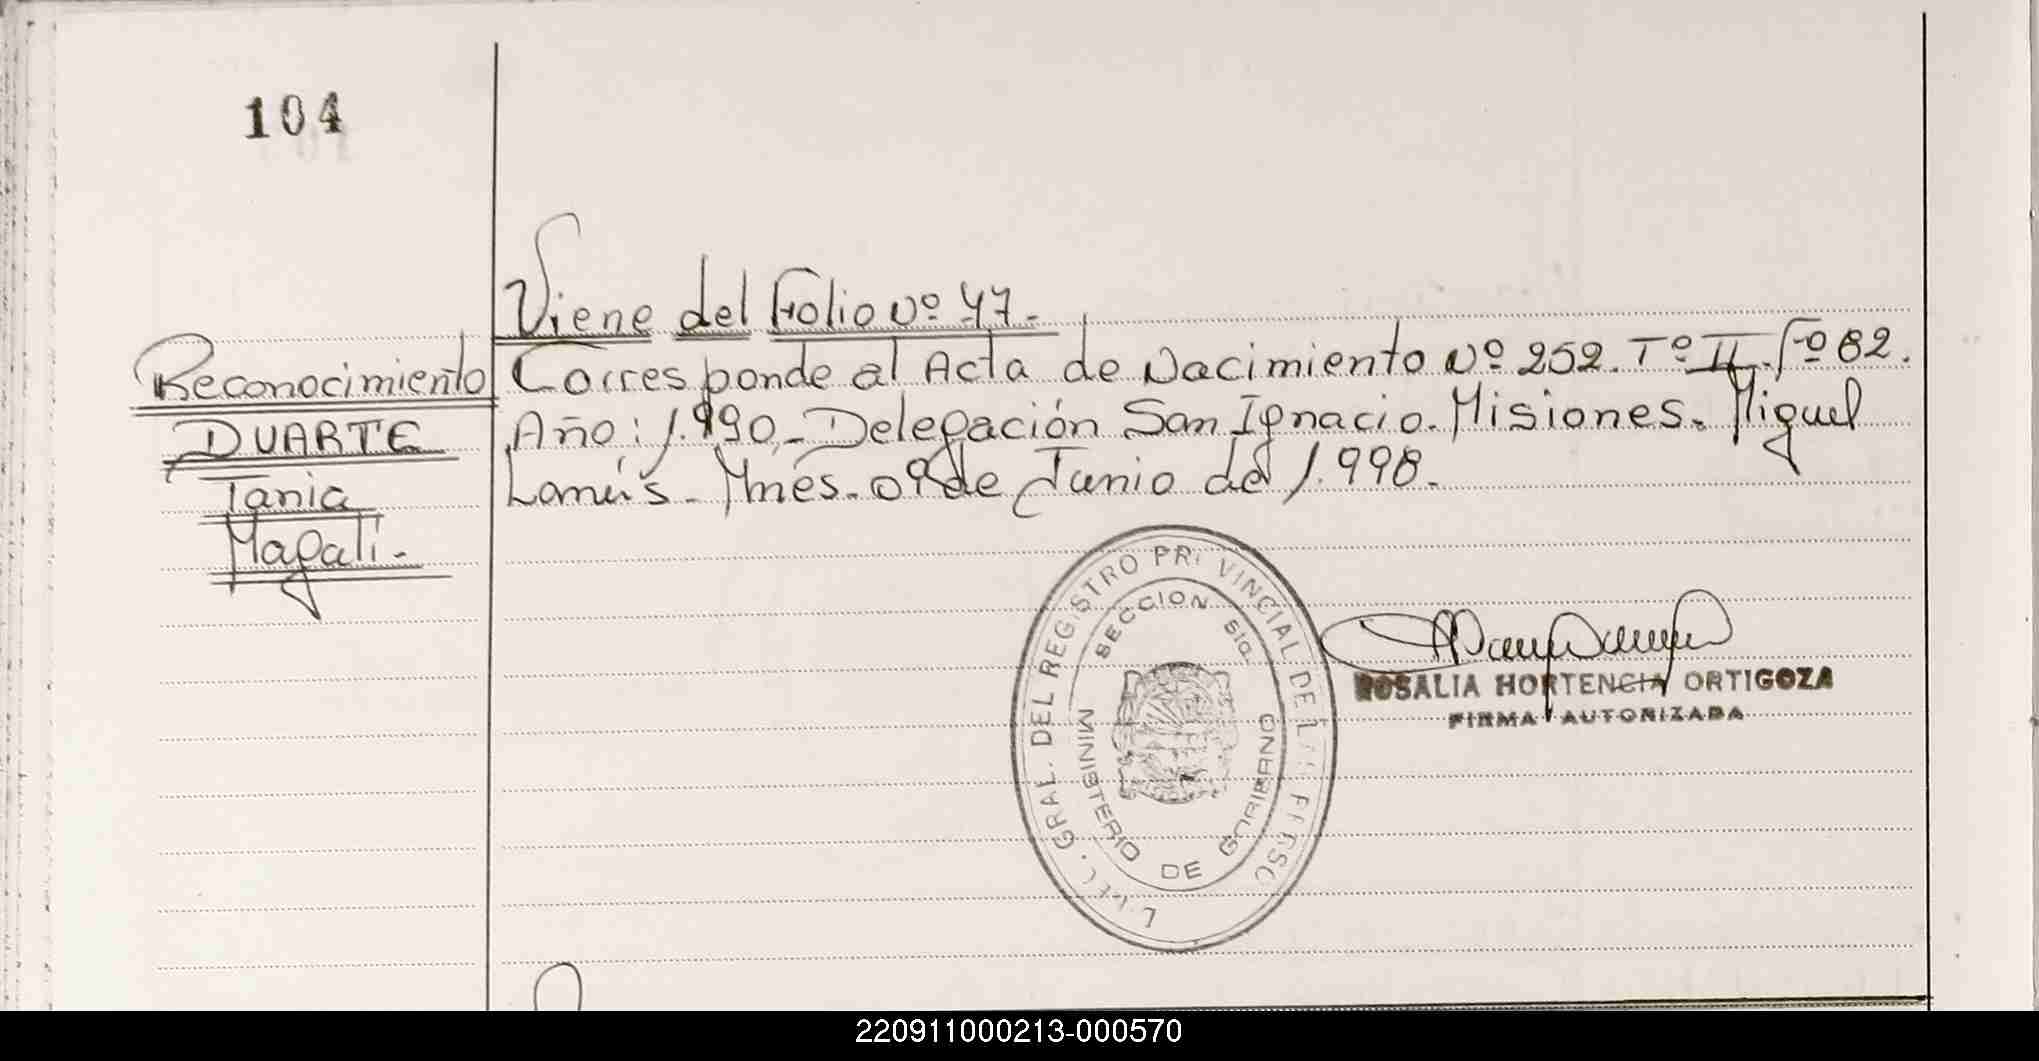 104
Viene del Folio Nº 47.-
Reconocimiento
DUARTE
Tania
Magali.-
Corresponde al Acta de Nacimiento Nº 252. Tº II. Fº 82.
Año: 1.990.- Delegación San Ignacio. Misiones. Miguel
Lanús.- Mnes. 09 de Junio del 1.998.
GRAL. DEL REGISTRO PR VINCIAL DE LAS
SECCION SIG.
MINISTERIO DE GOBIERNO
ROSALIA HORTENCIA ORTIGOZA
FIRMA AUTORIZADA
220911000213-000570